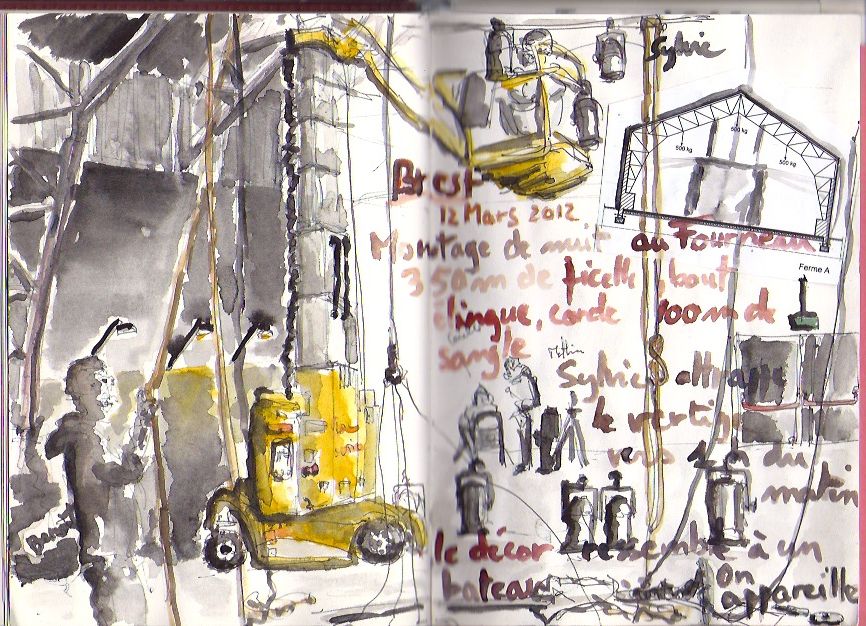 Sylvie
500 kg
500 kg
500 kg
Brest
12 Mars 2012
Montage de nuit au Fourneau
350m de ficelle, bout
élingue, corde 100m de
sangle
Ferme A
Sylvie attrape
le vertige
vers 1h du
matin
Benoît
le décor ressemble à un
bateau
On
appareille